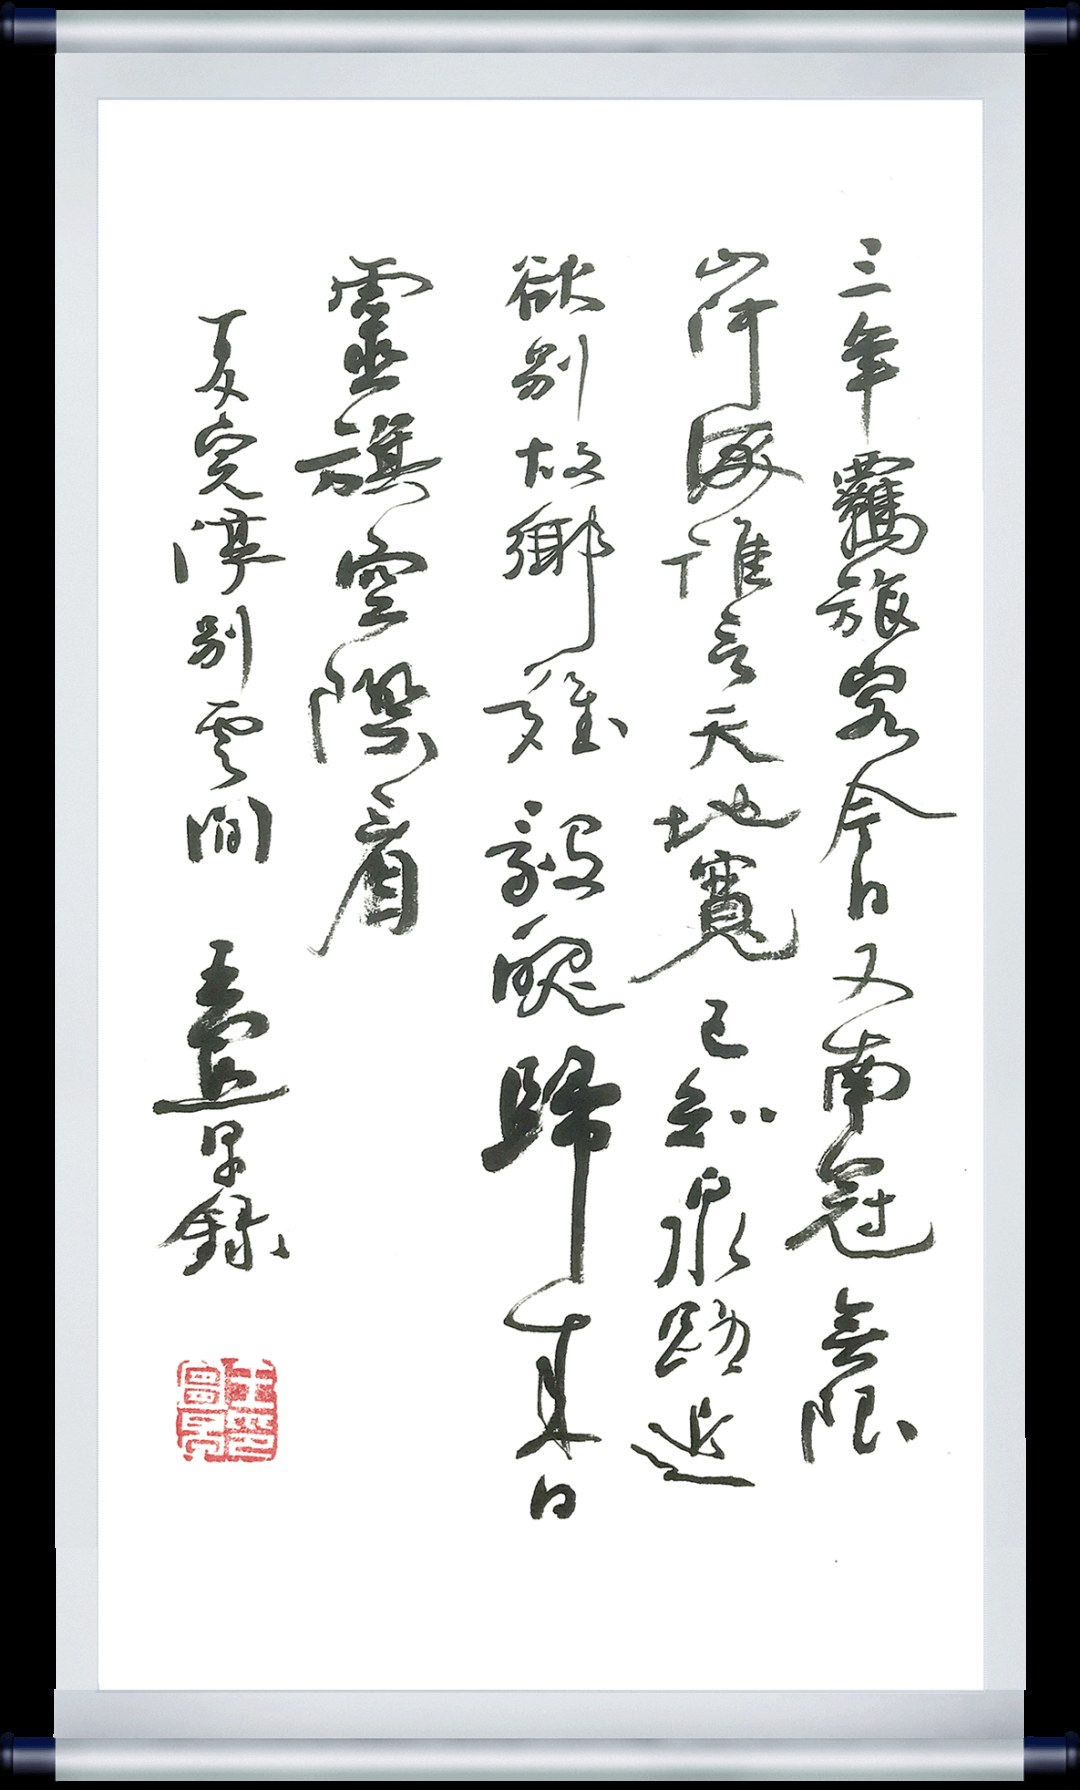 三年羈旅客今日又南冠無限
山河淚誰言天地寬已知泉路近
欲別故鄉難毅魄歸來日
靈旗空際看
夏完淳別雲間 錄